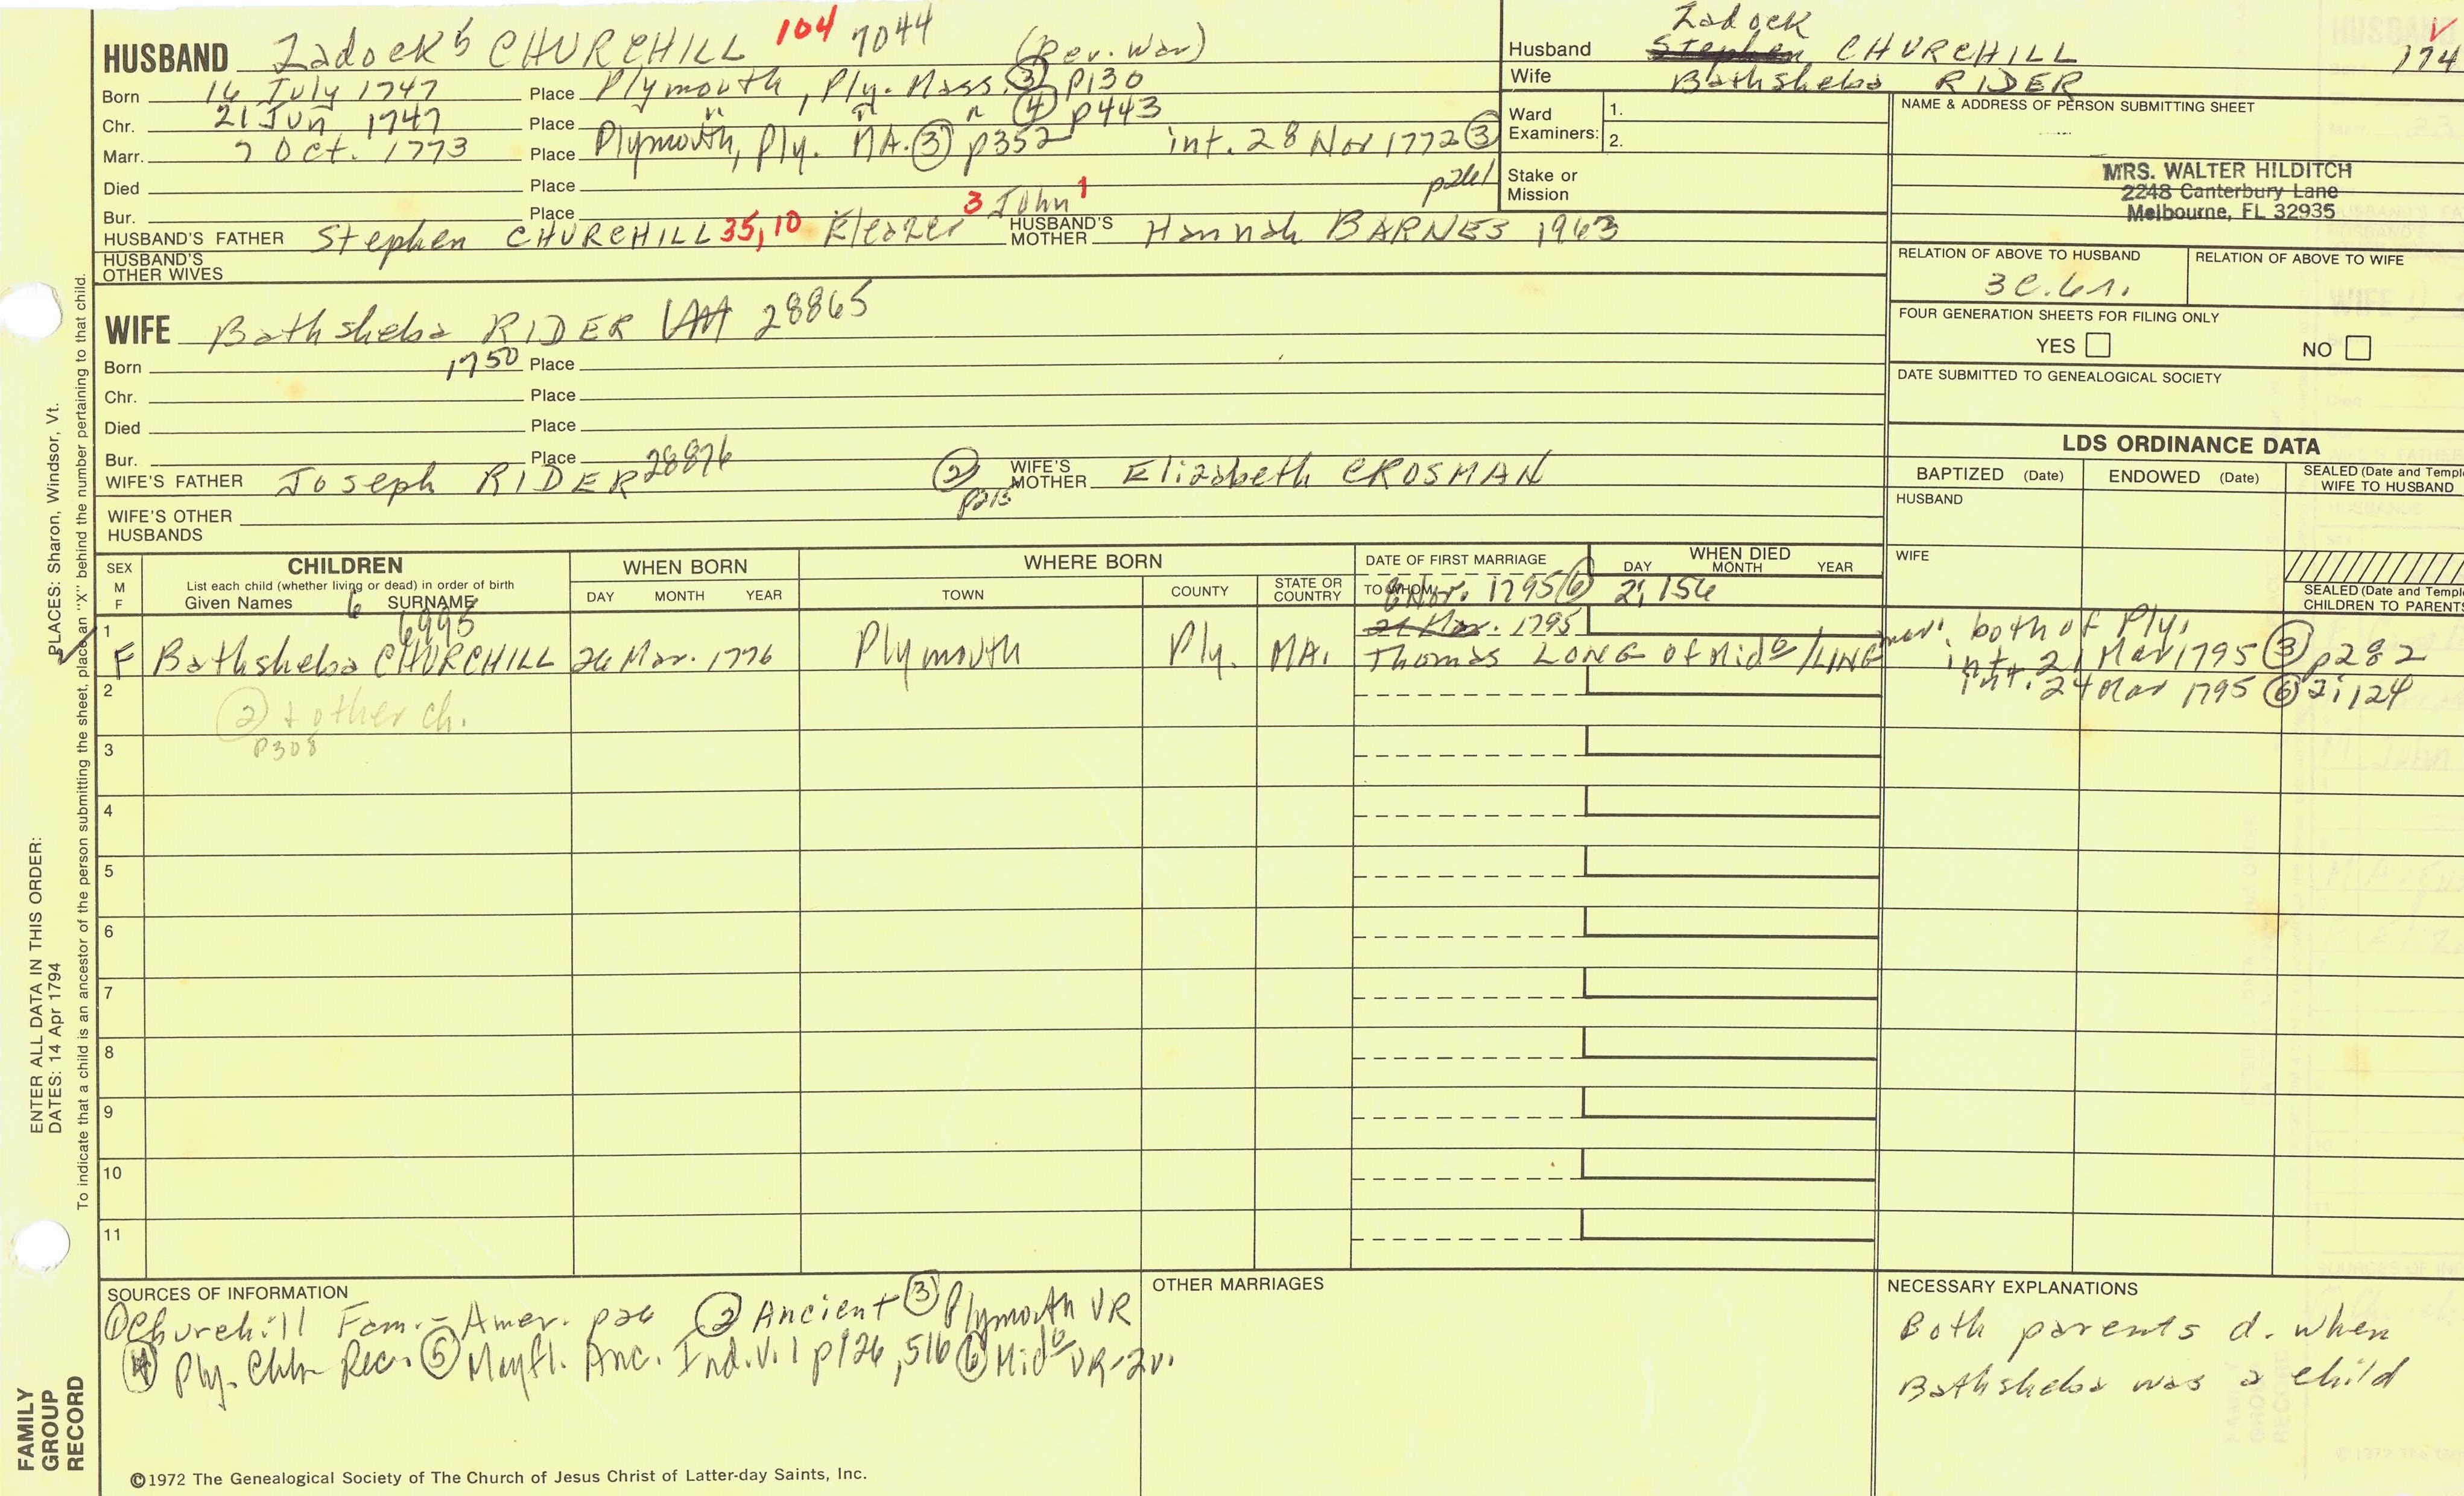 HUSBAND Zadock 5 CHURCHILL 104 7044 (Rev. War)
Born 14 July 1747 Place Plymouth, Ply. Mass. ③ p130
Chr. 21 Jun 1747 Place " " " ④ p443
Marr. 7 Oct. 1773 Place Plymouth, Ply. MA. ③ p352 int. 28 Nov 1772 ③ p261
Died Place
Bur. Place
HUSBAND'S FATHER Stephen CHURCHILL 35, 10 Eleazer 3 John 1 HUSBAND'S MOTHER Hannah BARNES 1963
HUSBAND'S OTHER WIVES
WIFE Bathsheba RIDER 28865
Born 1750 Place
Chr. Place
Died Place
Bur. Place
WIFE'S FATHER Joseph RIDER 28876 ② p215 WIFE'S MOTHER Elizabeth CROSMAN
WIFE'S OTHER HUSBANDS
Husband Zadock Stephen CHURCHILL
174
Wife Bathsheba RIDER
Ward Examiners: 1.
2.
Stake or Mission
NAME & ADDRESS OF PERSON SUBMITTING SHEET
MRS. WALTER HILDITCH
2248 Canterbury Lane
Melbourne, FL 32935
RELATION OF ABOVE TO HUSBAND RELATION OF ABOVE TO WIFE
FOUR GENERATION SHEETS FOR FILING ONLY
YES NO
DATE SUBMITTED TO GENEALOGICAL SOCIETY
LDS ORDINANCE DATA
BAPTIZED (Date) ENDOWED (Date) SEALED (Date and Templ
WIFE TO HUSBAND
HUSBAND
WIFE
SEALED (Date and Templ
CHILDREN TO PARENTS
SEX M F
CHILDREN
List each child (whether living or dead) in order of birth
Given Names SURNAME
6 6995
WHEN BORN
DAY MONTH YEAR
WHERE BORN
TOWN COUNTY STATE OR COUNTRY
DATE OF FIRST MARRIAGE
TO WHOM
WHEN DIED
DAY MONTH YEAR
Nov. 1795 ⑥ 2;156
1 F Bathsheba CHURCHILL 26 Mar. 1776 Plymouth Ply. MA. 21 Mar. 1795
Thomas LONG of Mid° /LING
both of Ply.
int. 21 Mar 1795 ③ p282
int. 24 Mar 1795 ⑥ 2;124
2 ② + other ch.
p308
3
4
5
6
7
8
9
10
11
SOURCES OF INFORMATION
① Churchill Fam.- Amer. p26 ② Ancient ③ Plymouth VR
④ Ply. Chh Rec. ⑤ Mayfl. Anc. Ind. V. 1 p126, 516 ⑥ Mid° VR-2v.
OTHER MARRIAGES
NECESSARY EXPLANATIONS
Both parents d. when
Bathsheba was a child
©1972 The Genealogical Society of The Church of Jesus Christ of Latter-day Saints, Inc.
FAMILY GROUP RECORD
ENTER ALL DATA IN THIS ORDER:
DATES: 14 Apr 1794 PLACES: Sharon, Windsor, Vt.
To indicate that a child is an ancestor of the person submitting the sheet, place an "X" behind the number pertaining to that child.